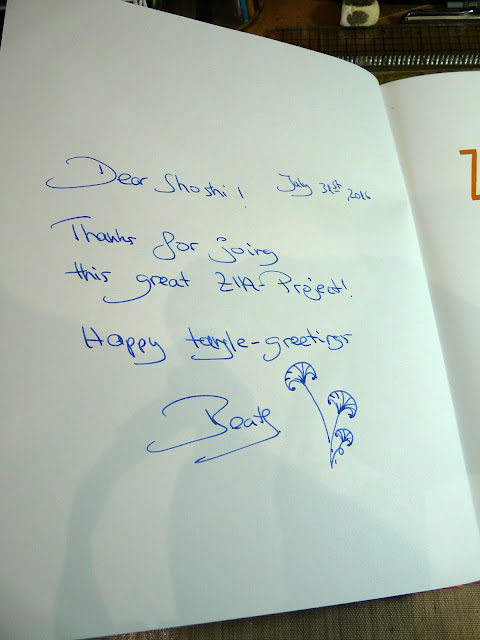 Dear Shoshi! July 31st, 2016
Thanks for joing
this great ZIA-Project!
Happy tangle-greetings
Beate